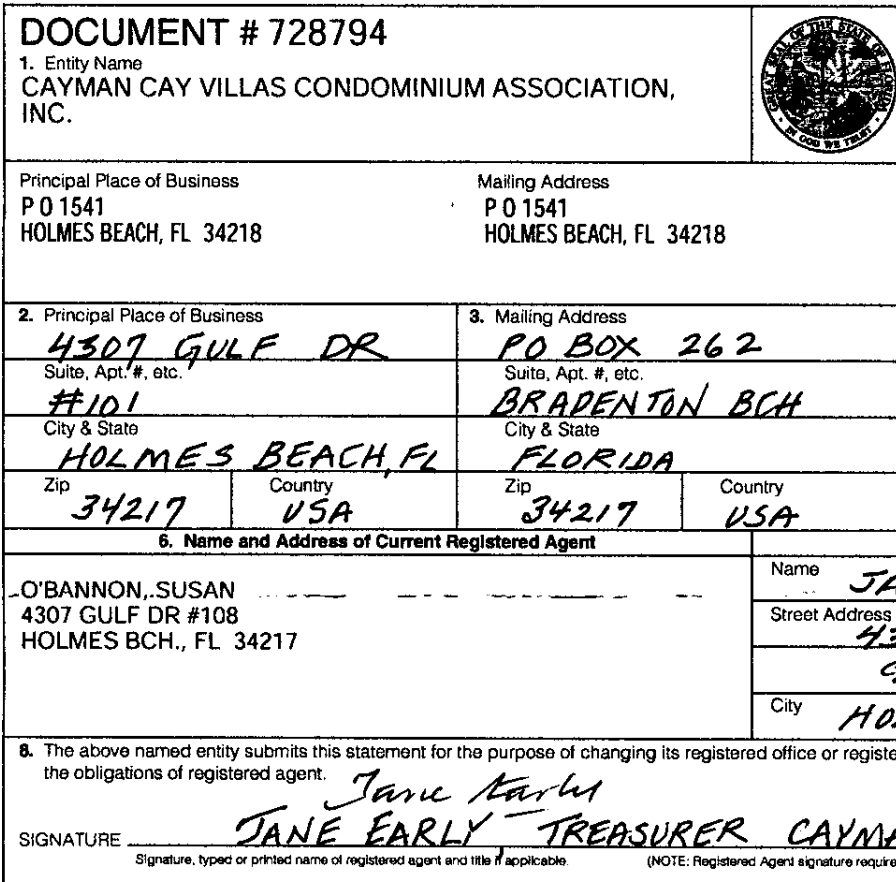 DOCUMENT # 728794
1. Entity Name
CAYMAN CAY VILLAS CONDOMINIUM ASSOCIATION,
INC.
GREAT SEAL OF THE STATE OF FLORIDA
IN GOD WE TRUST
Principal Place of Business
P O 1541
HOLMES BEACH, FL 34218
Mailing Address
P O 1541
HOLMES BEACH, FL 34218
2. Principal Place of Business
4307 GULF DR
Suite, Apt. #, etc.
#101
City & State
HOLMES BEACH, FL
Zip
34217
Country
USA
3. Mailing Address
PO BOX 262
Suite, Apt. #, etc.
BRADENTON BCH
City & State
FLORIDA
Zip
34217
Country
USA
6. Name and Address of Current Registered Agent
O'BANNON, SUSAN
4307 GULF DR #108
HOLMES BCH., FL 34217
Name JA
Street Address
43
City HO
8. The above named entity submits this statement for the purpose of changing its registered office or registe
the obligations of registered agent.
Jane Early
SIGNATURE JANE EARLY TREASURER CAYMA
Signature, typed or printed name of registered agent and title if applicable. (NOTE: Registered Agent signature require